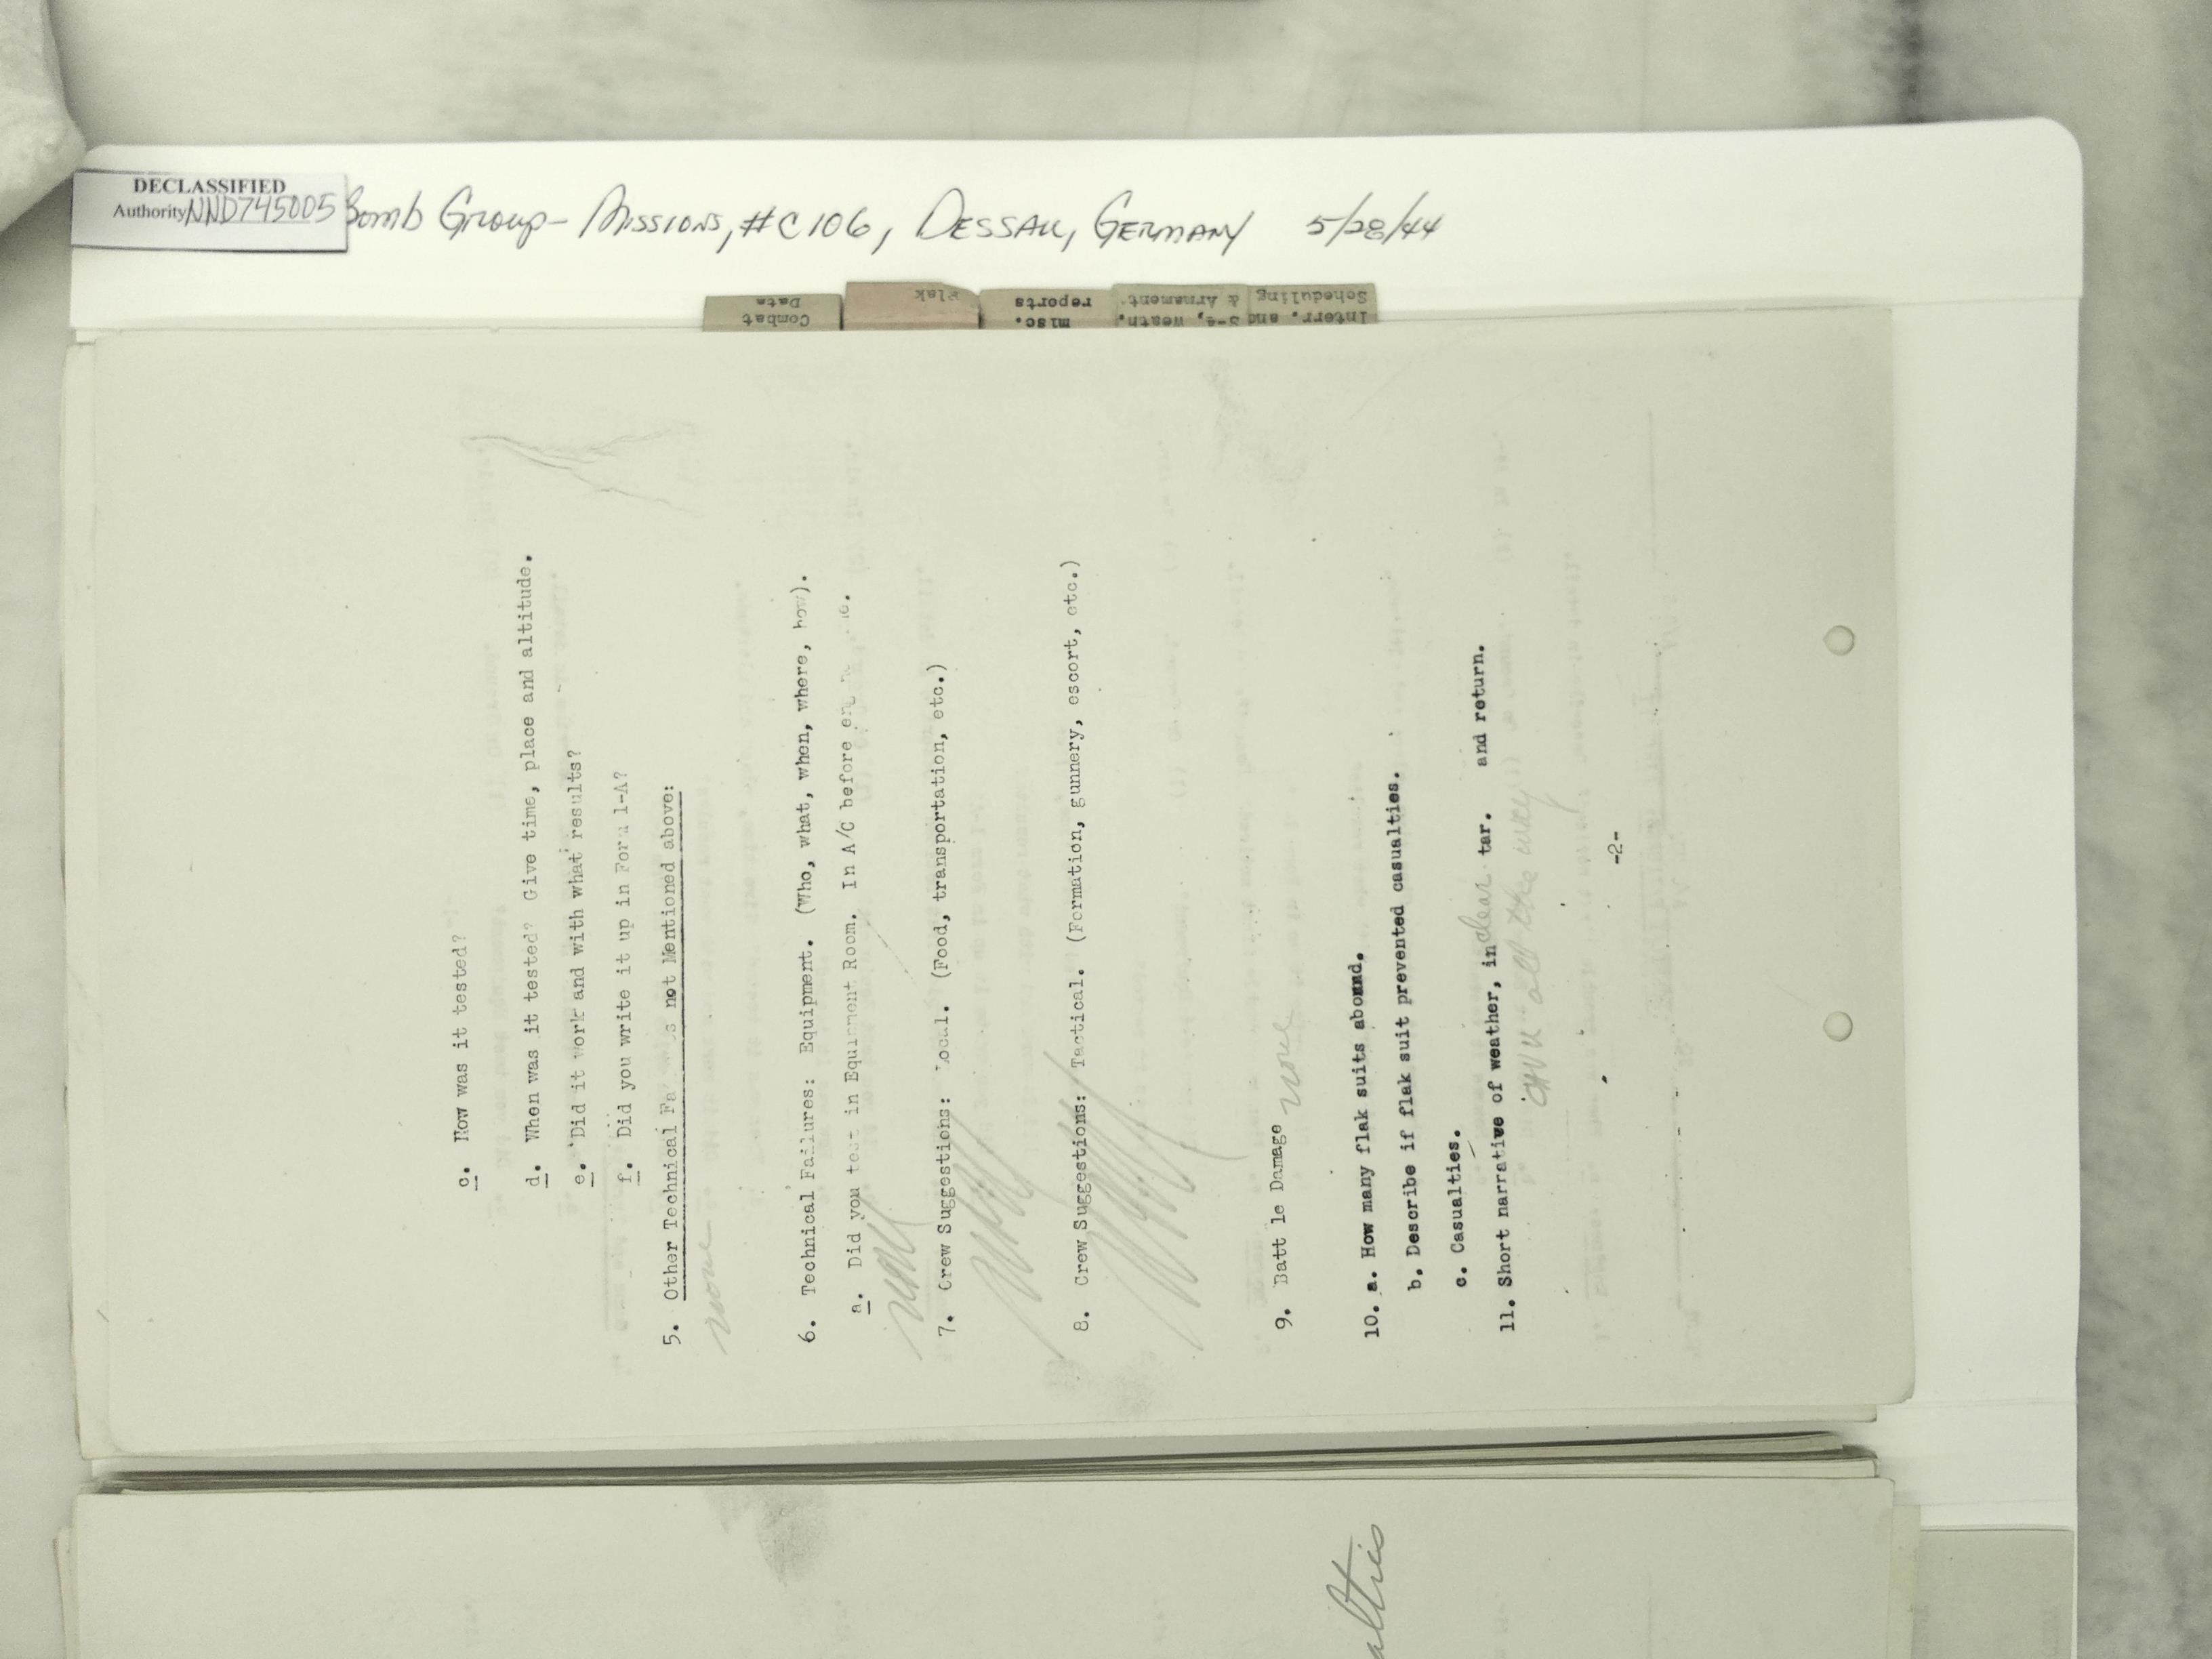 DECLASSIFIED
Authority NND745005
Bomb Group - Missions, #C106, Dessau, Germany 5/28/44
Combat
Data
Flak
misc.
reports
S-2, Weath,
& Armament.
Interr. and
Scheduling
c. How was it tested?
d. When was it tested? Give time, place and altitude.
e. Did it work and with what results?
f. Did you write it up in Form 1-A?
5. Other Technical not Mentioned above:
none
6. Technical Failures: Equipment. (Who, what, when, where, how).
a. Did you test in Equipment Room. In A/C before
7. Crew Suggestions: Local. (Food, transportation, etc.)
8. Crew Suggestions: Tactical. (Formation, gunnery, escort, etc.)
9. Batt le Damage none
10. a. How many flak suits abound.
b. Describe if flak suit prevented casualties.
c. Casualties.
11. Short narrative of weather, in clear tar. and return.
CAVU all the way
-2-
alties